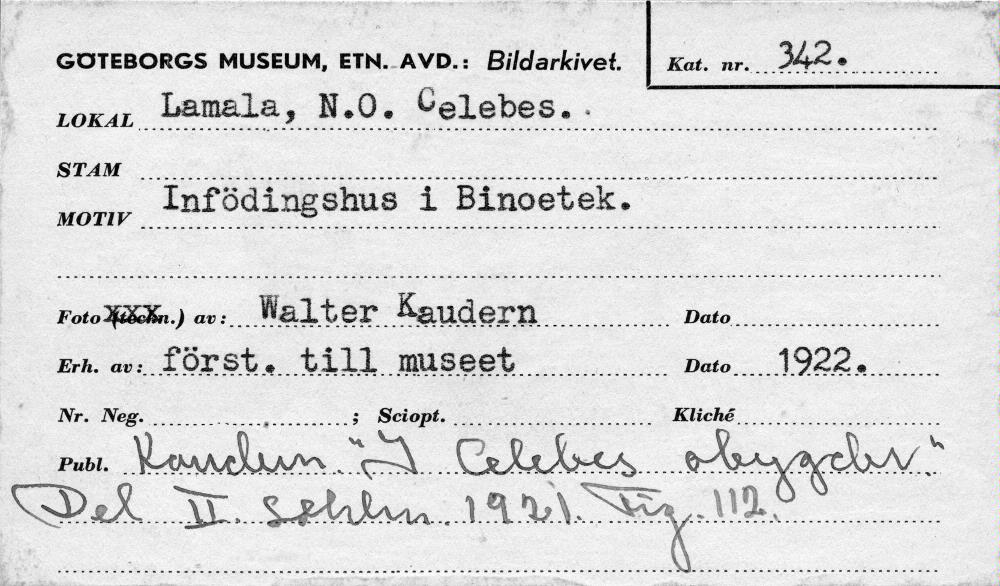 GÖTEBORGS MUSEUM, ETN. AVD.: Bildarkivet. Kat. nr. 342.
LOKAL Lamala, N.O. Celebes.
STAM
MOTIV Infödingshus i Binoetek.
Foto (techn.) av: Walter Kaudern Dato
Erh. av: först. till museet Dato 1922.
Nr. Neg. ; Sciopt. Kliché
Publ. Kaudern. "I Celebes obygder"
Del II. Sthlm. 1921. Fig. 112.